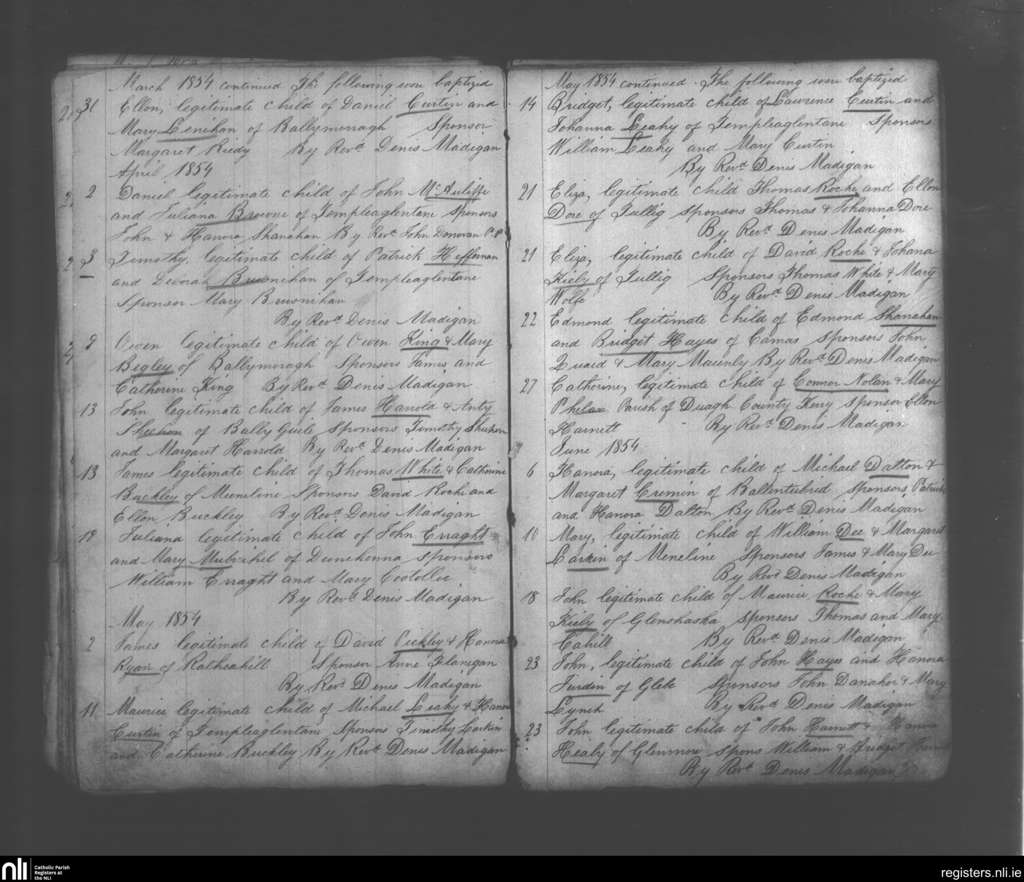 March 1854 continued. The following were baptized
31 Ellen, legitimate child of Daniel Curtin and
Mary Lenihan of Ballymurragh Sponsor
Margaret Reidy By Revd. Denis Madigan
April 1854
2 Daniel legitimate child of John McAuliffe
and Juliana Browne of Templeaglentane Sponsors
John & Hanora Shanahan By Revd. John Donovan P.P
3 Timothy, legitimate child of Patrick Heffernan
and Deborah of Templeaglentane
Sponsor Mary
By Revd Denis Madigan
9 Owen legitimate child of Owen King & Mary
Begley of Ballymurragh Sponsors James and
Catherine King By Revd. Denis Madigan
13 John legitimate child of James Harold & Anty
Sheehan of Bally Guile Sponsors Timothy Sheehan
and Margaret Harrold By Revd. Denis Madigan
13 James legitimate child of Thomas White & Catherine
Buckley of Meneline Sponsors David Roche and
Ellen Buckley By Revd. Denis Madigan
19 Juliana legitimate child of John Erraght
and Mary Mulvihil of Sponsors
William Erraght and Mary
By Revd. Denis Madigan
May 1854
2 James legitimate child of David & Hanora
Ryan of Rathcahill Sponsor Anne Flanigan
By Revd. Denis Madigan
11 Maurice legitimate child of Michael Leahy & Hanora
Curtin of Templeaglentane Sponsors Timothy Curtin
and Catherine Buckley By Revd. Denis Madigan
May 1854 continued. The following were baptized
14 Bridget, legitimate child of Lawrence Curtin and
Johanna Leahy of Templeaglentane Sponsors
William Leahy and Mary Curtin
By Revd. Denis Madigan
21 Eliza, legitimate child Thomas Roche and Ellen
Dore of Tullig Sponsors Thomas & Johanna Dore
By Revd. Denis Madigan
21 Eliza, legitimate child of David Roche & Johana
Kiely of Tullig Sponsors Thomas White & Mary
Wolfe By Revd. Denis Madigan
22 Edmond legitimate child of Edmond Shanahan
and Bridget Hayes of Camas Sponsors John
& Mary By Revd. Denis Madigan
27 Catherine, legitimate child of Connor Nolan & Mary
Phelan Parish of Duagh County Kerry Sponsor Ellen
Harnett By Revd. Denis Madigan
June 1854
6 Hanora, legitimate child of Michael Dalton &
Margaret Cremin of Ballintubrid Sponsors Patrick
and Hanora Dalton By Revd. Denis Madigan
10 Mary, legitimate child of William Dee & Margaret
Larkin of Meneline Sponsors James & Mary Dee
By Revd Denis Madigan
18 John legitimate child of Maurice Roche & Mary
Kiely of Glenshaska Sponsors Thomas and Mary
Cahill By Revd. Denis Madigan
23 John, legitimate child of John Hayes and Hanora
of Glebe Sponsors John Danaher & Mary
Lynch By Revd. Denis Madigan
23 John, legitimate child of John Harnett & Hanora
Healy of Glenmore Spons William & Bridget
By Revd. Denis Madigan
nli Catholic Parish
Registers at
the NLI
registers.nli.ie